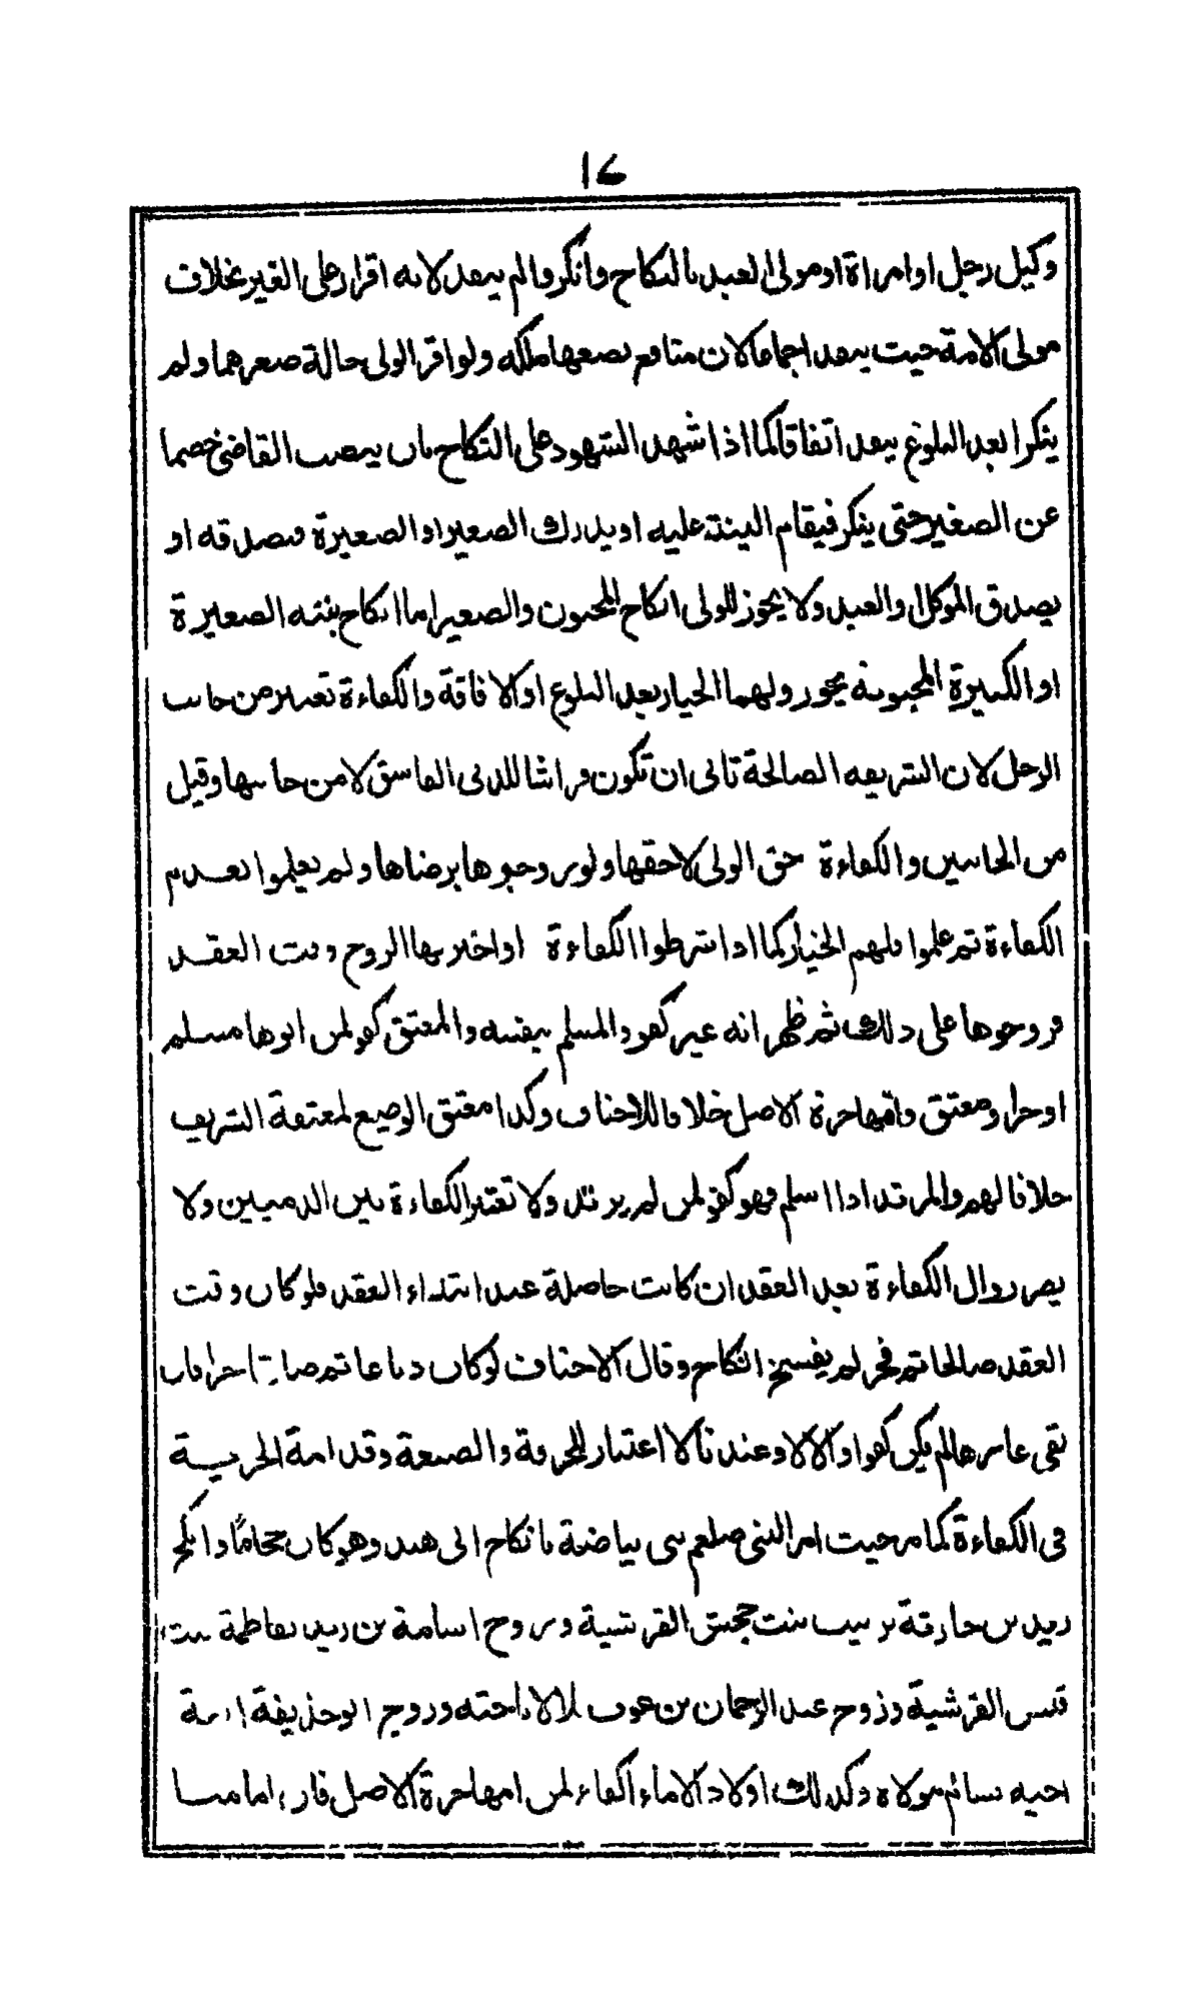 ١٦
وكيل رجل او امراة او مولى العبد بالنكاح وانكروا لم ينفذ لانه اقرار على الغير بخلاف
مولى الامة حيث ينفذ اجماعا لان منافع بضعها ملكه ولو اقر الولى حالة صغرهما ولم
ينكرا بعد البلوغ ينفذ اتفاقا كما اذا شهد الشهود على النكاح بان ينصب القاضى خصما
عن الصغير حتى ينكر فيقام البينة عليه او يدرك الصغير او الصغيرة فصدقه او
يصدق الموكل والعبد ولا يجوز للولى انكاح المجنون والصغير اما انكاح بنته الصغيرة
او الكبيرة المجنونة يجوز ولهما الخيار بعد البلوغ او الافاقة والكفاءة تعتبر من جانب
الرجل لان الشريفه الصالحة تابى ان تكون فراشا للدنى الفاسق لا من جانبها وقيل
من الجانبين والكفاءة حق الولى لا حقها ولو زوجوها برضاها ولم يعلموا بعدم
الكفاءة ثم علموا فلهم الخيار كما اذا اشترطوا الكفاءة او اخبر بها الزوج وقت العقد
فزوجوها على ذلك ثم ظهر انه غير كفو والمسلم بنفسه والمعتق كفو لمن ابوها مسلم
او حر او معتق وامها حرة الاصل خلافا للاحناف وكذا معتق الوضيع لمعتقة الشريف
خلافا لهم والمرتد اذا اسلم فهو كفو لمن لم يرتد ولا تعتبر الكفاءة بين الذميين ولا
يضر زوال الكفاءة بعد العقد ان كانت حاصلة عند ابتداء العقد فلو كان وقت
العقد صالحا ثم فجر لم يفسخ النكاح وقال الاحناف لو كان دباغا ثم صار تاجرا فان
بقى عارها لم يكن كفوا والا لا وعندنا لا اعتبار للحرفة والصنعة وقدامة الحرية
فى الكفاءة كما مر حيث امر النبى صلعم بنى بياضة بانكاح ابى هند وهو كان حجاما وانكح
زيد بن حارثة زينب بنت جحش القرشية وتزوج اسامة بن زيد بفاطمة بنت
قيس القرشية وزوج عبد الرحمان بن عوف بلالا باخته وزوج ابو حذيفة ابنة
اخيه سالم مولاه وكذلك اولاد الاماء اكفاء لمن امها حرة الاصل فان اما منا